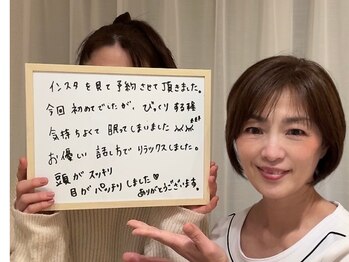 インスタを見て予約させて頂きました。
今回初めてでしたが、びっくりする程
気持ちよくて眠ってしまいました
お優しい話し方でリラックスしました。
頭がスッキリ
目がパッチリしました♡
ありがとうございます。